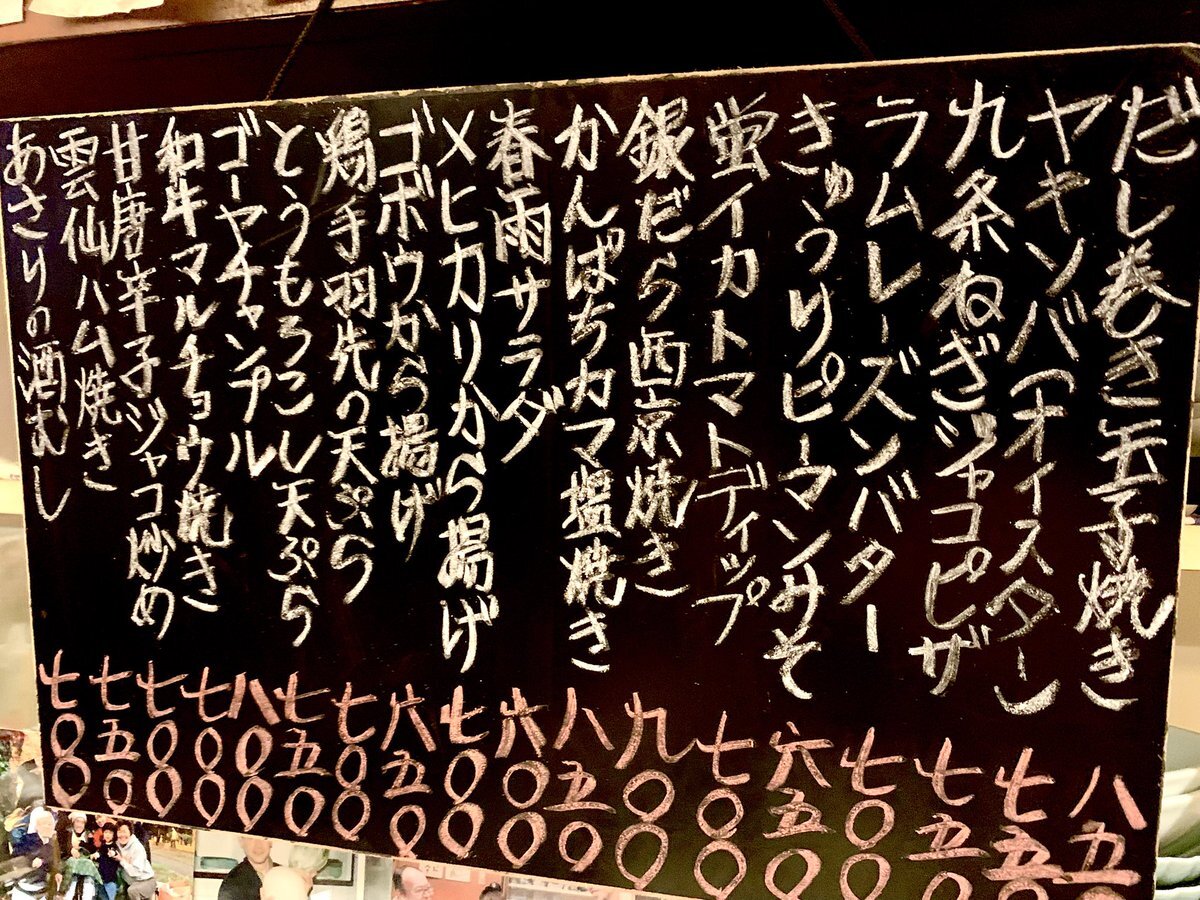 だし巻き玉子焼き 八五〇
ヤキソバ(オイスター) 七五〇
九条ねぎジャコピザ 七五〇
ラムレーズンバター 七〇〇
きゅうりピーマンみそ 六五〇
蛍イカトマトディップ 七〇〇
銀だら西京焼き 九〇〇
かんぱちカマ塩焼き 八五〇
春雨サラダ 六〇〇
メヒカリから揚げ 七〇〇
ゴボウから揚げ 六五〇
鶏手羽先の天ぷら 七〇〇
とうもろこし天ぷら 七五〇
ゴーヤチャンプル 八〇〇
和牛マルチョウ焼き 七〇〇
甘唐辛子ジャコ炒め 七〇〇
雲仙ハム焼き 七五〇
あさりの酒むし 七〇〇